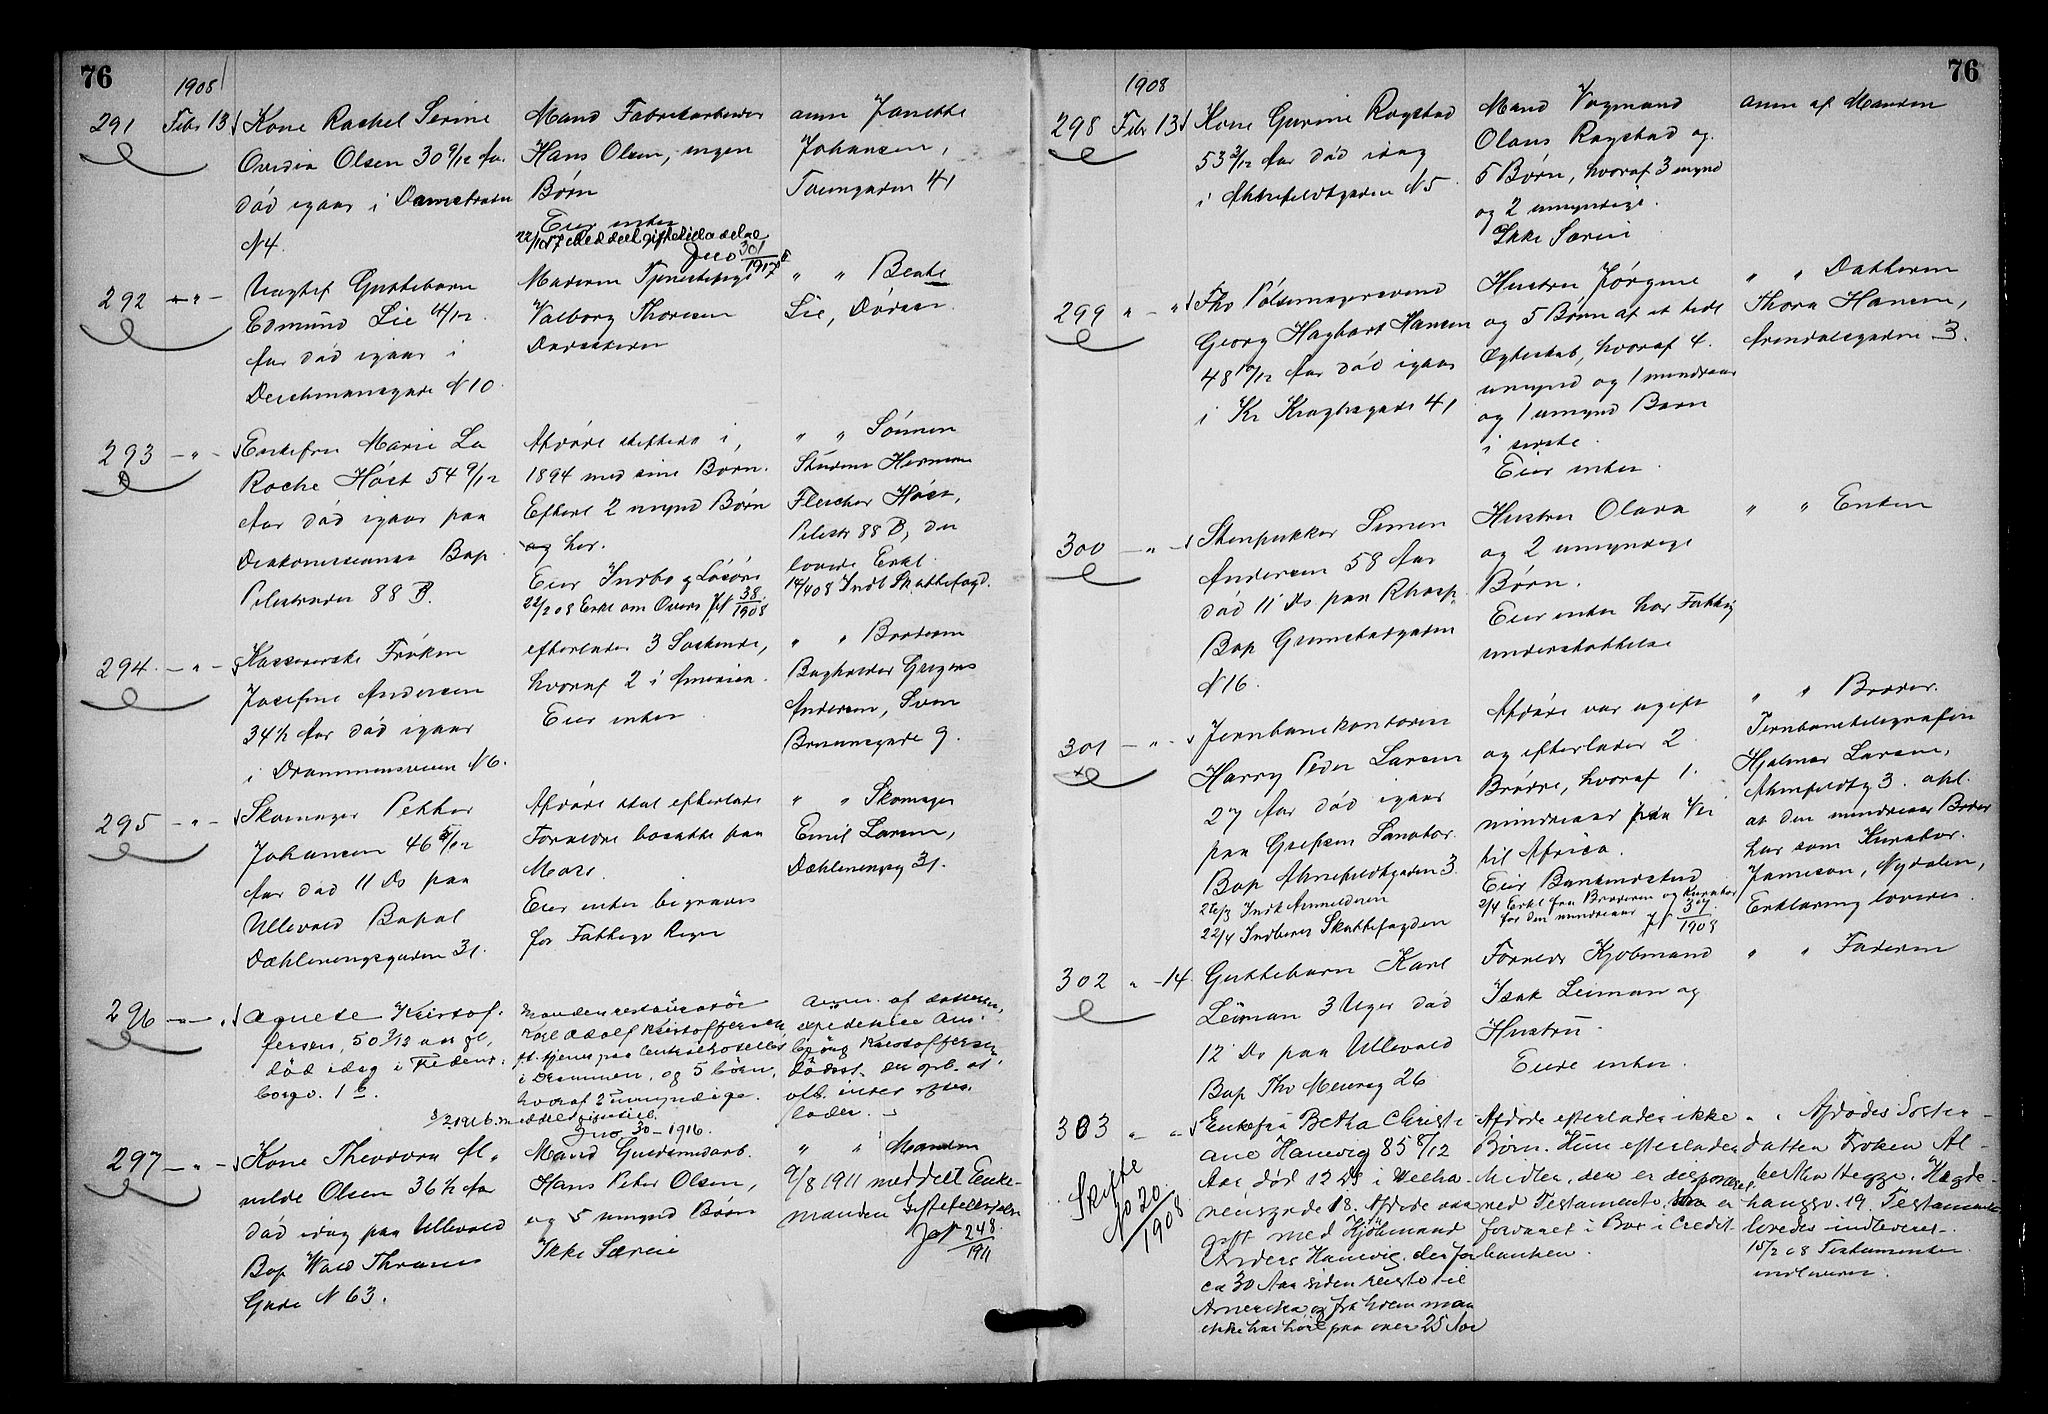 76
1908
291 Febr 13 Kone Rachel Serine
Ovidia Olsen 30 9/12 Aar
død igaar i Damstræde
N 4.
Mand Fabrikarbeider
Hans Olsen, ingen
Børn
Eier intet
Jno 301/1917
anm Janette
Johansen,
Taarngaden 41
292 - " - Uægtef Guttebarn
Edmund Lie 4/12
Aar død igaar i
Deichmansgade N 10.
Moderen Tjenestepige
Valborg Thoresen
Darbakken
" " Beate
Lie, Dødsst
293 - " - Enkefru Marie La
Roche Høst 54 9/12
Aar død igaar paa
Diakonissernes Bop
Pilestrædet 88 B.
Afdøde skiftede i
1894 med sine Børn.
Efterl 2 mynd Børn
og her.
Eier Indbo og Løsøre
22/2 08 Erkl om Overt Jf 38/1908
" " Sønnen
Student Herman
Fleischer Høst,
Pilestr 88 B, der
lovede Erkl.
14/4 08 Indb Skattefogd.
294 - " - Kassererske Frøken
Josefine Andersen
34 1/2 Aar død igaar
i Drammensveien N 6.
efterlader 3 Søskende,
hvoraf 2 i Amerika.
Eier intet
" " Broderen
Bogholder Gregers
Andersen, Sven
Bruunsgade 9.
295 - " - Skomager Petter
Johansen 46 5/12
Aar død 11 Ds paa
Ullevold Bopæl
Dæhlenengsgaden 31.
Afdøde skal efterlade
Forældre bosatte paa
Moss.
Eier intet begraves
for Fattigv Regn
" " Skomager
Emil Larsen,
Dæhlenengg 31.
296 - " - Agnete Kristof-
fersen, 50 3/12 aar gl,
død idag i Fredens-
borgv. 1 b.
Manden restauratør
Karl Adolf Kristoffersen
ft. tjener paa Centralhotellet
i Drammen, og 5 børn,
hvoraf 2 umyndige.
Jno 30 - 1916.
anm. af datteren,
expeditrice Ans-
bjørg Kristoffersen
Dødsst. der opl. at
afd. intet efter-
lader.
297 - " - Kone Theodora Al-
vilde Olsen 36 1/2 Aar
død idag paa Ullevold
Bop Wald Thranes
Gade N 63.
Mand Gaardmdarb.
Hans Peter Olsen,
og 5 umynd Børn
Ikke Særeie
" " Manden
9/8 1911 meddelt Enke-
manden Giftetilladelse
Jf 248/1911
76
1908
298 Febr 13 Kone Gurine Rogstad
53 3/12 Aar død idag
i Ahnefeldtgaden N 5.
Mand Vognmand
Olaus Rogstad og
5 Børn, hvoraf 3 mynd
og 2 umyndige.
Ikke Særeie
anm af Manden
299 " - " Fhv Pølsemagersvend
Georg Hagbart Hansen
48 10/12 Aar død igaar
i Kr Kroghsgade 41
Hustru Jørgine
og 5 Børn af et tidl
Ægteskab, hvoraf 4
umynd og 1 mindreaar
og 1 umynd Barn
i sidste.
Eier intet.
" " Datteren
Thora Hansen,
Arendalsgaden 3.
300 - " - Stenpukker Simen
Andersen 58 Aar
død 11 Ds paa Rhosp.
Bop Grimstadgaden
N 16.
Hustru Olava
og 2 umyndige
Børn.
Eier intet har Fattig
understøttelse
" " Enken
301 - " - Jernbanekontorist
Harry Peder Larsen
27 Aar død igaar
paa Grefsen Sanator.
Bop Ahnefeldtgaden 3.
26/3 Indk Anmelderen
22/4 Indberet Skattefogden
Afdøde var ugift
og efterlader 2
Brødre, hvoraf 1
mindreaar paa Vei
til Africa.
Eier Bankindskud
2/4 Erkl fra Broderen og Kurator
for den mindreaar Jf 307/1908
" " Broder.
Jernbanetelegrafist
Hjalmar Larsen,
Ahnfeldtg 3. opl.
at den mindreaar Broder
har som Kurator
Jameson, Nydalen,
Erklæring loves.
302 " - 14. Guttebarn Karl
Leiman 3 Uger død
12 Ds paa Ullevold
Bop Thv Meiersg 26
Forældr Kjøbmand
Isak Leiman og
Hustru.
Eiede intet.
" " Faderen
303 " " Enkefru Betha Christi-
ane Hanevig 85 8/12
Aar død 12 Ds i Welha-
vensgade 18. Afdøde var
gift med Kjøbmand
Anders Hanevig, der for
ca 30 Aar siden reiste til
Amerika og fra hvem man
ikke har hørt paa over 25 Aar
Skifte
No 20/1908
Afdøde efterlader ikke
Børn. Hun efterlader
Midler, der er desponeret
ved Testamente, som er
forvaret i Box i Credit-
banken.
" " Afdødes Søster-
datter Frøken Al
bertha Hegge, Hægde-
haugsv. 19. Testamente
lovedes indleveret.
15/2 08 Testamentet
indleveret.